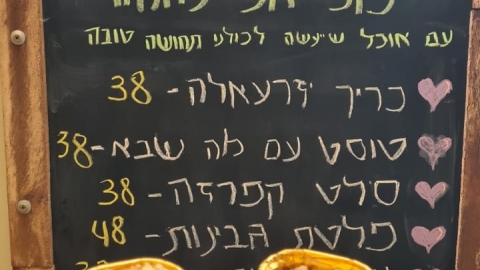 עם אוכל שיעשה לכולנו תחושה טובה
כריך יזרעאלה - 38
טוסט עם מה שבא - 38
סלט קפרזה - 38
פלטת גבינות - 48